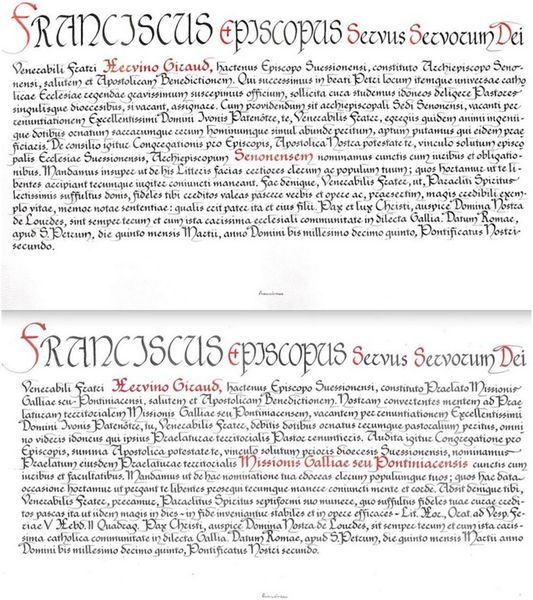 FRANCISCUS EPISCOPUS Servus Servorum Dei
Venerabili Fratri Hervino Giraud, hactenus Episcopo Suessionensi, constituto Archiepiscopo Seno-
nensi, salutem et Apostolicam Benedictionem. Qui successimus in beati Petri locum itemque universae catho
licae Ecclesiae regendae gravissimum suscepimus officium, sollicita cura studemus idoneos deligere Pastores
singulisque dioecesibus, si vacant, assignare. Cum providendum sit archiepiscopali Sedi Senonensi, vacanti per
renuntiationem Excellentissimi Domini Ivonis Patenôtre, te, Venerabilis Frater, egregiis quidem animi ingenii-
que dotibus ornatum sacrarumque rerum hominumque simul abunde peritum, aptum putamus qui eidem prae
ficiaris. De consilio igitur Congregationis pro Episcopis, Apostolica Nostra potestate te, vinculo solutum episco
palis Ecclesiae Suessionensis, Archiepiscopum Senonensem nominamus cunctis cum iuribus et obligatio-
nibus. Mandamus insuper ut de his Litteris facias certiores clerum ac populum tuum; quos hortamur ut te li-
bentes accipiant tecumque iugiter coniuncti maneant. Fac denique, Venerabilis Frater, ut, Paracliti Spiritus
lectissimis suffultus donis, fideles tibi creditos valeas pascere verbis et opere ac, praesertim, magis credibili exem-
plo vitae, memor notae sententiae: qualis erit pater ita et eius filii. Pax et lux Christi, auspice Domina Nostra
de Lourdes, sint semper tecum et cum ista carissima ecclesiali communitate in dilecta Gallia. Datum Romae,
apud S. Petrum, die quinto mensis Martii, anno Domini bis millesimo decimo quinto, Pontificatus Nostri
secundo.
Franciscus
FRANCISCUS EPISCOPUS Servus Servorum Dei
Venerabili Fratri Hervino Giraud, hactenus Episcopo Suessionensi, constituto Praelato Missionis
Galliae seu Pontiniacensi, salutem et Apostolicam Benedictionem. Nostram convertentes mentem ad Prae
laturam territorialem Missionis Galliae seu Pontiniacensem, vacantem per renuntiationem Excellentissimi
Domini Ivonis Patenôtre, tu, Venerabilis Frater, debitis dotibus ornatus rerumque pastoralium peritus, omni
no videris idoneus qui ipsius Praelaturae territorialis Pastor renuntieris. Audita igitur Congregatione pro
Episcopis, summa Apostolica potestate te, vinculo solutum prioris dioecesis Suessionensis, nominamus
Praelatum eiusdem Praelaturae territorialis Missionis Galliae seu Pontiniacensis cunctis cum
iuribus et facultatibus. Mandamus ut de hac nominatione tua edoceas clerum populumque tuos; quos hac data
occasione hortamur ut pergant te libentes prosequi tecumque manere coniuncti mente et corde. Adst denique tibi,
Venerabilis Frater, precamur, Paraclitus Spiritus septiformi suo munere, quo suffultus fideles tuae curae credi-
tos pascas ita ut iidem magis in dies - in fide inveniantur stabiles et in opere efficaces - Lit. Hor., Orat. ad Vesp. Fe-
riae V Hebd. II Quadrag. Pax Christi, auspice Domina Nostra de Lourdes, sit semper tecum et cum ista caris-
sima catholica communitate in dilecta Gallia. Datum Romae, apud S. Petrum, die quinto mensis Martii anno
Domini bis millesimo decimo quinto, Pontificatus Nostri secundo.
Franciscus